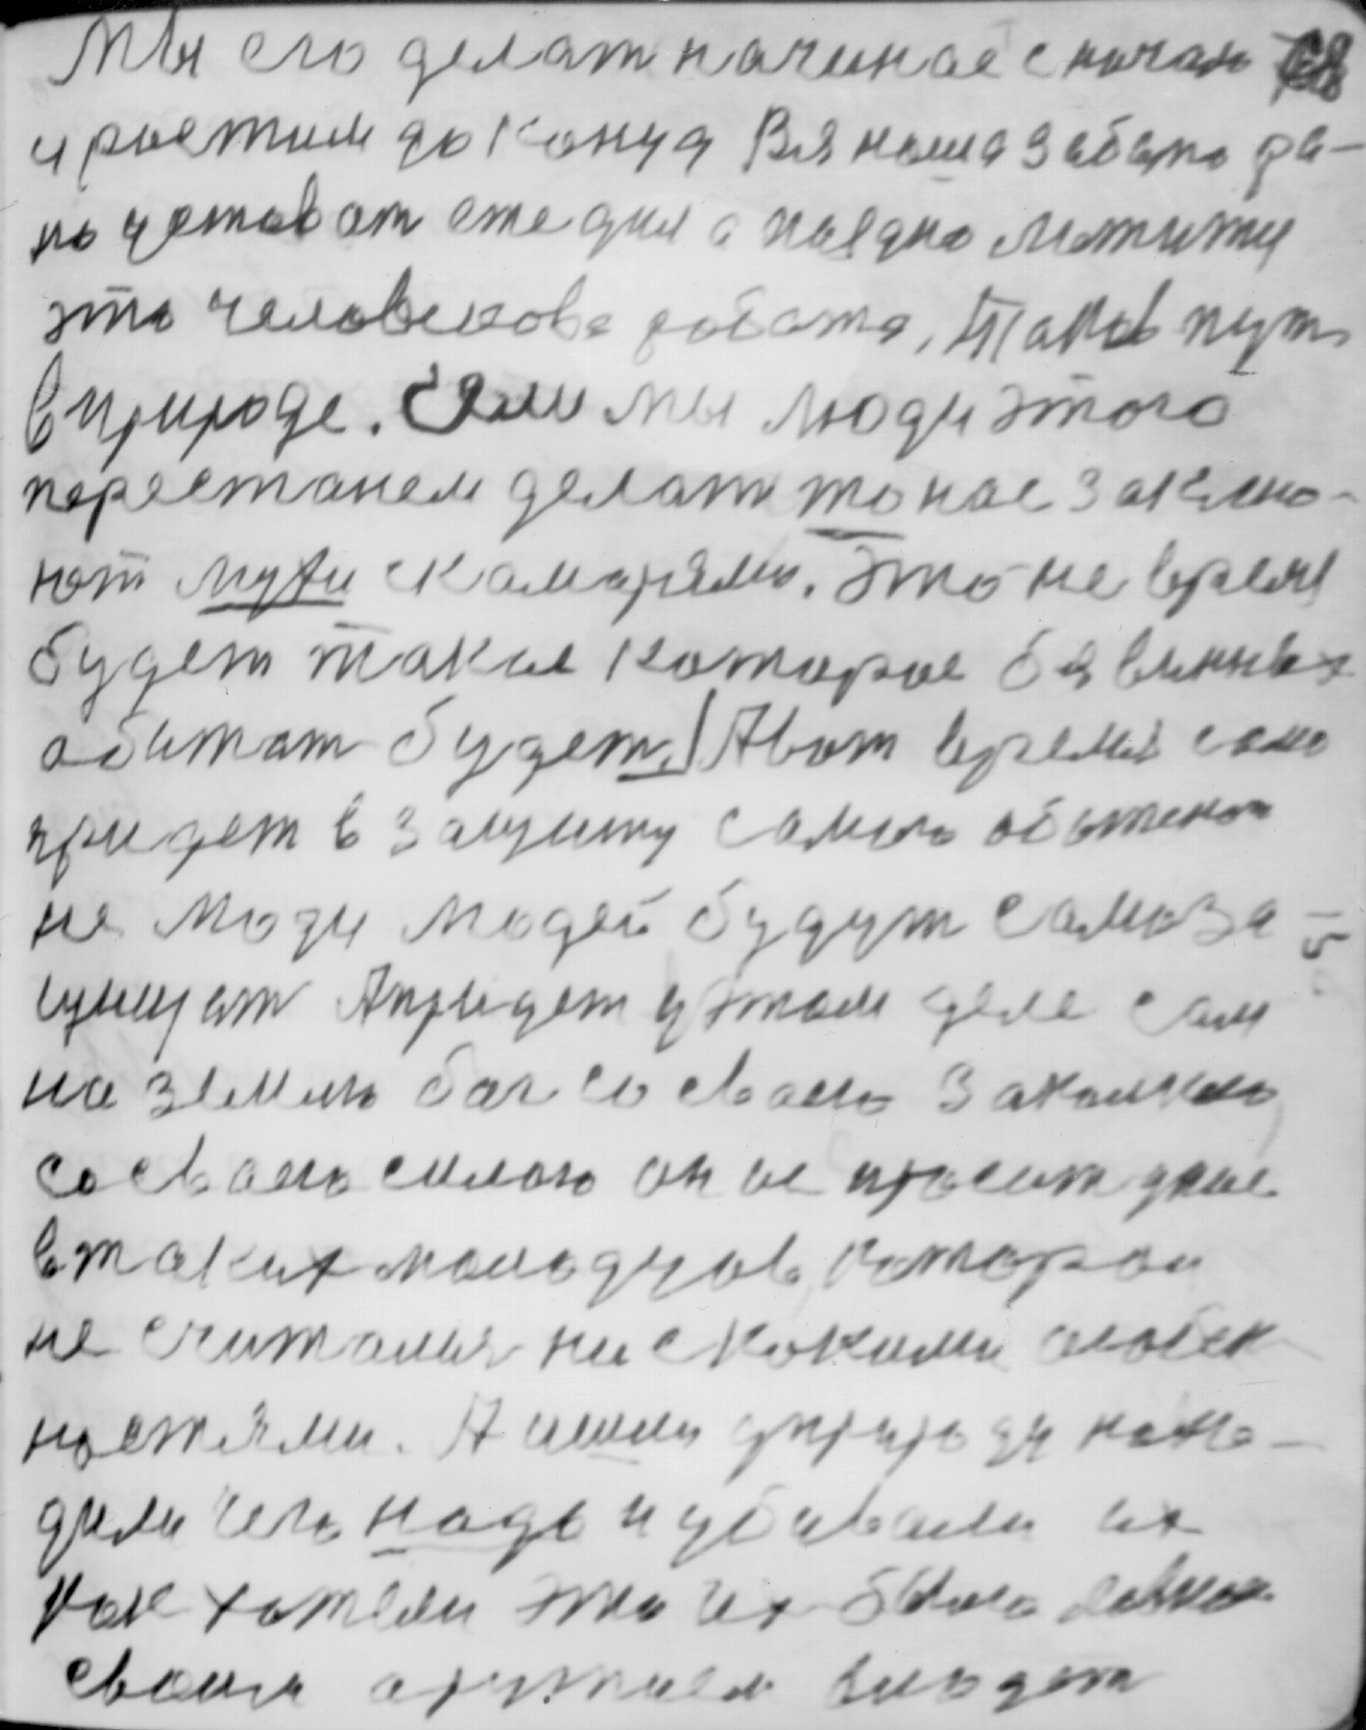 Мы его делат начинае с начало 68
и ростим до конца Вся наша забота ра-
но устават еже дня а поздно ложитця
это человекова работа, Таков путь
в природе. Если мы люди этого
перестанем делать то нас заклю-
ют мухи скомарями. Это не время
будет такое которое безвинных
обитат будет. А вот время само
придет в защиту самого обиженого
не люди людей будут самоза
щищат А придет у этом деле сам
на землю бог со своею
со своею силою он не просит
в таких молодцов, которои
не считалися ни скокими особен
ностями. А шли уприроди нахо-
дили чего надо и убивали их
как хотели это их было
своим оружием владет